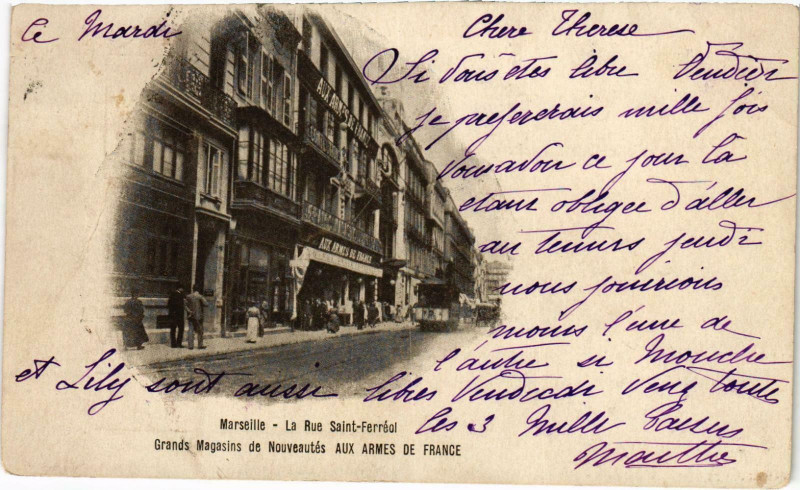 Ce Mardi
Chere Therese
Si vous êtes libre Vendredi
je prefererais mille fois
vous avoir ce jour là
etant obligée d'aller
au tennis jeudi
nous jouirions
moins l'une de
l'autre si Mouche
et Lily sont aussi libres Vendredi Venez toutes
les 3 Mille Baisers
Marthe
AUX ARMES DE FRANCE
AUX ARMES DE FRANCE
Marseille - La Rue Saint-Ferréol
Grands Magasins de Nouveautés AUX ARMES DE FRANCE